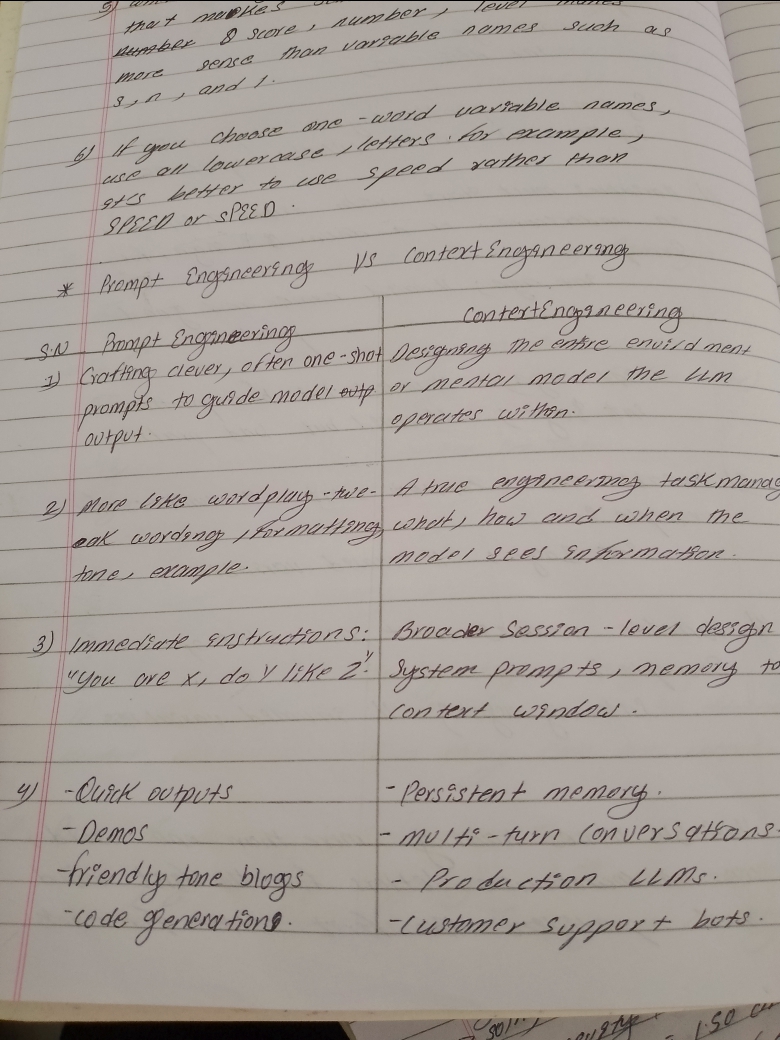 5)
that makes
number 8 score, number, level
more sense than variable names such as
s, n, and l.
6) If you choose one-word variable names,
use all lowercase, letters. for example,
it's better to use speed rather than
SPEED or sPEED.
* Prompt Engineering Vs Context Engineering
S.N Prompt Engineering
Context Engineering
1) Crafting clever, often one-shot
prompts to guide model outp
output.
Designing the entire envirdment
or mental model the LLM
operates within.
2) More like wordplay-twe-
eak wording, formatting,
tone, example.
A true engineering task manag
what, how and when the
model sees information.
3) Immediate instructions:
"You are x, do Y like Z".
Broader Session-level design
System prompts, memory to
context window.
4) -Quick outputs
-Demos
-friendly tone blogs
-code generation.
-Persistent memory.
-multi-turn conversations.
- Production LLMs.
-Customer support bots.
1.50